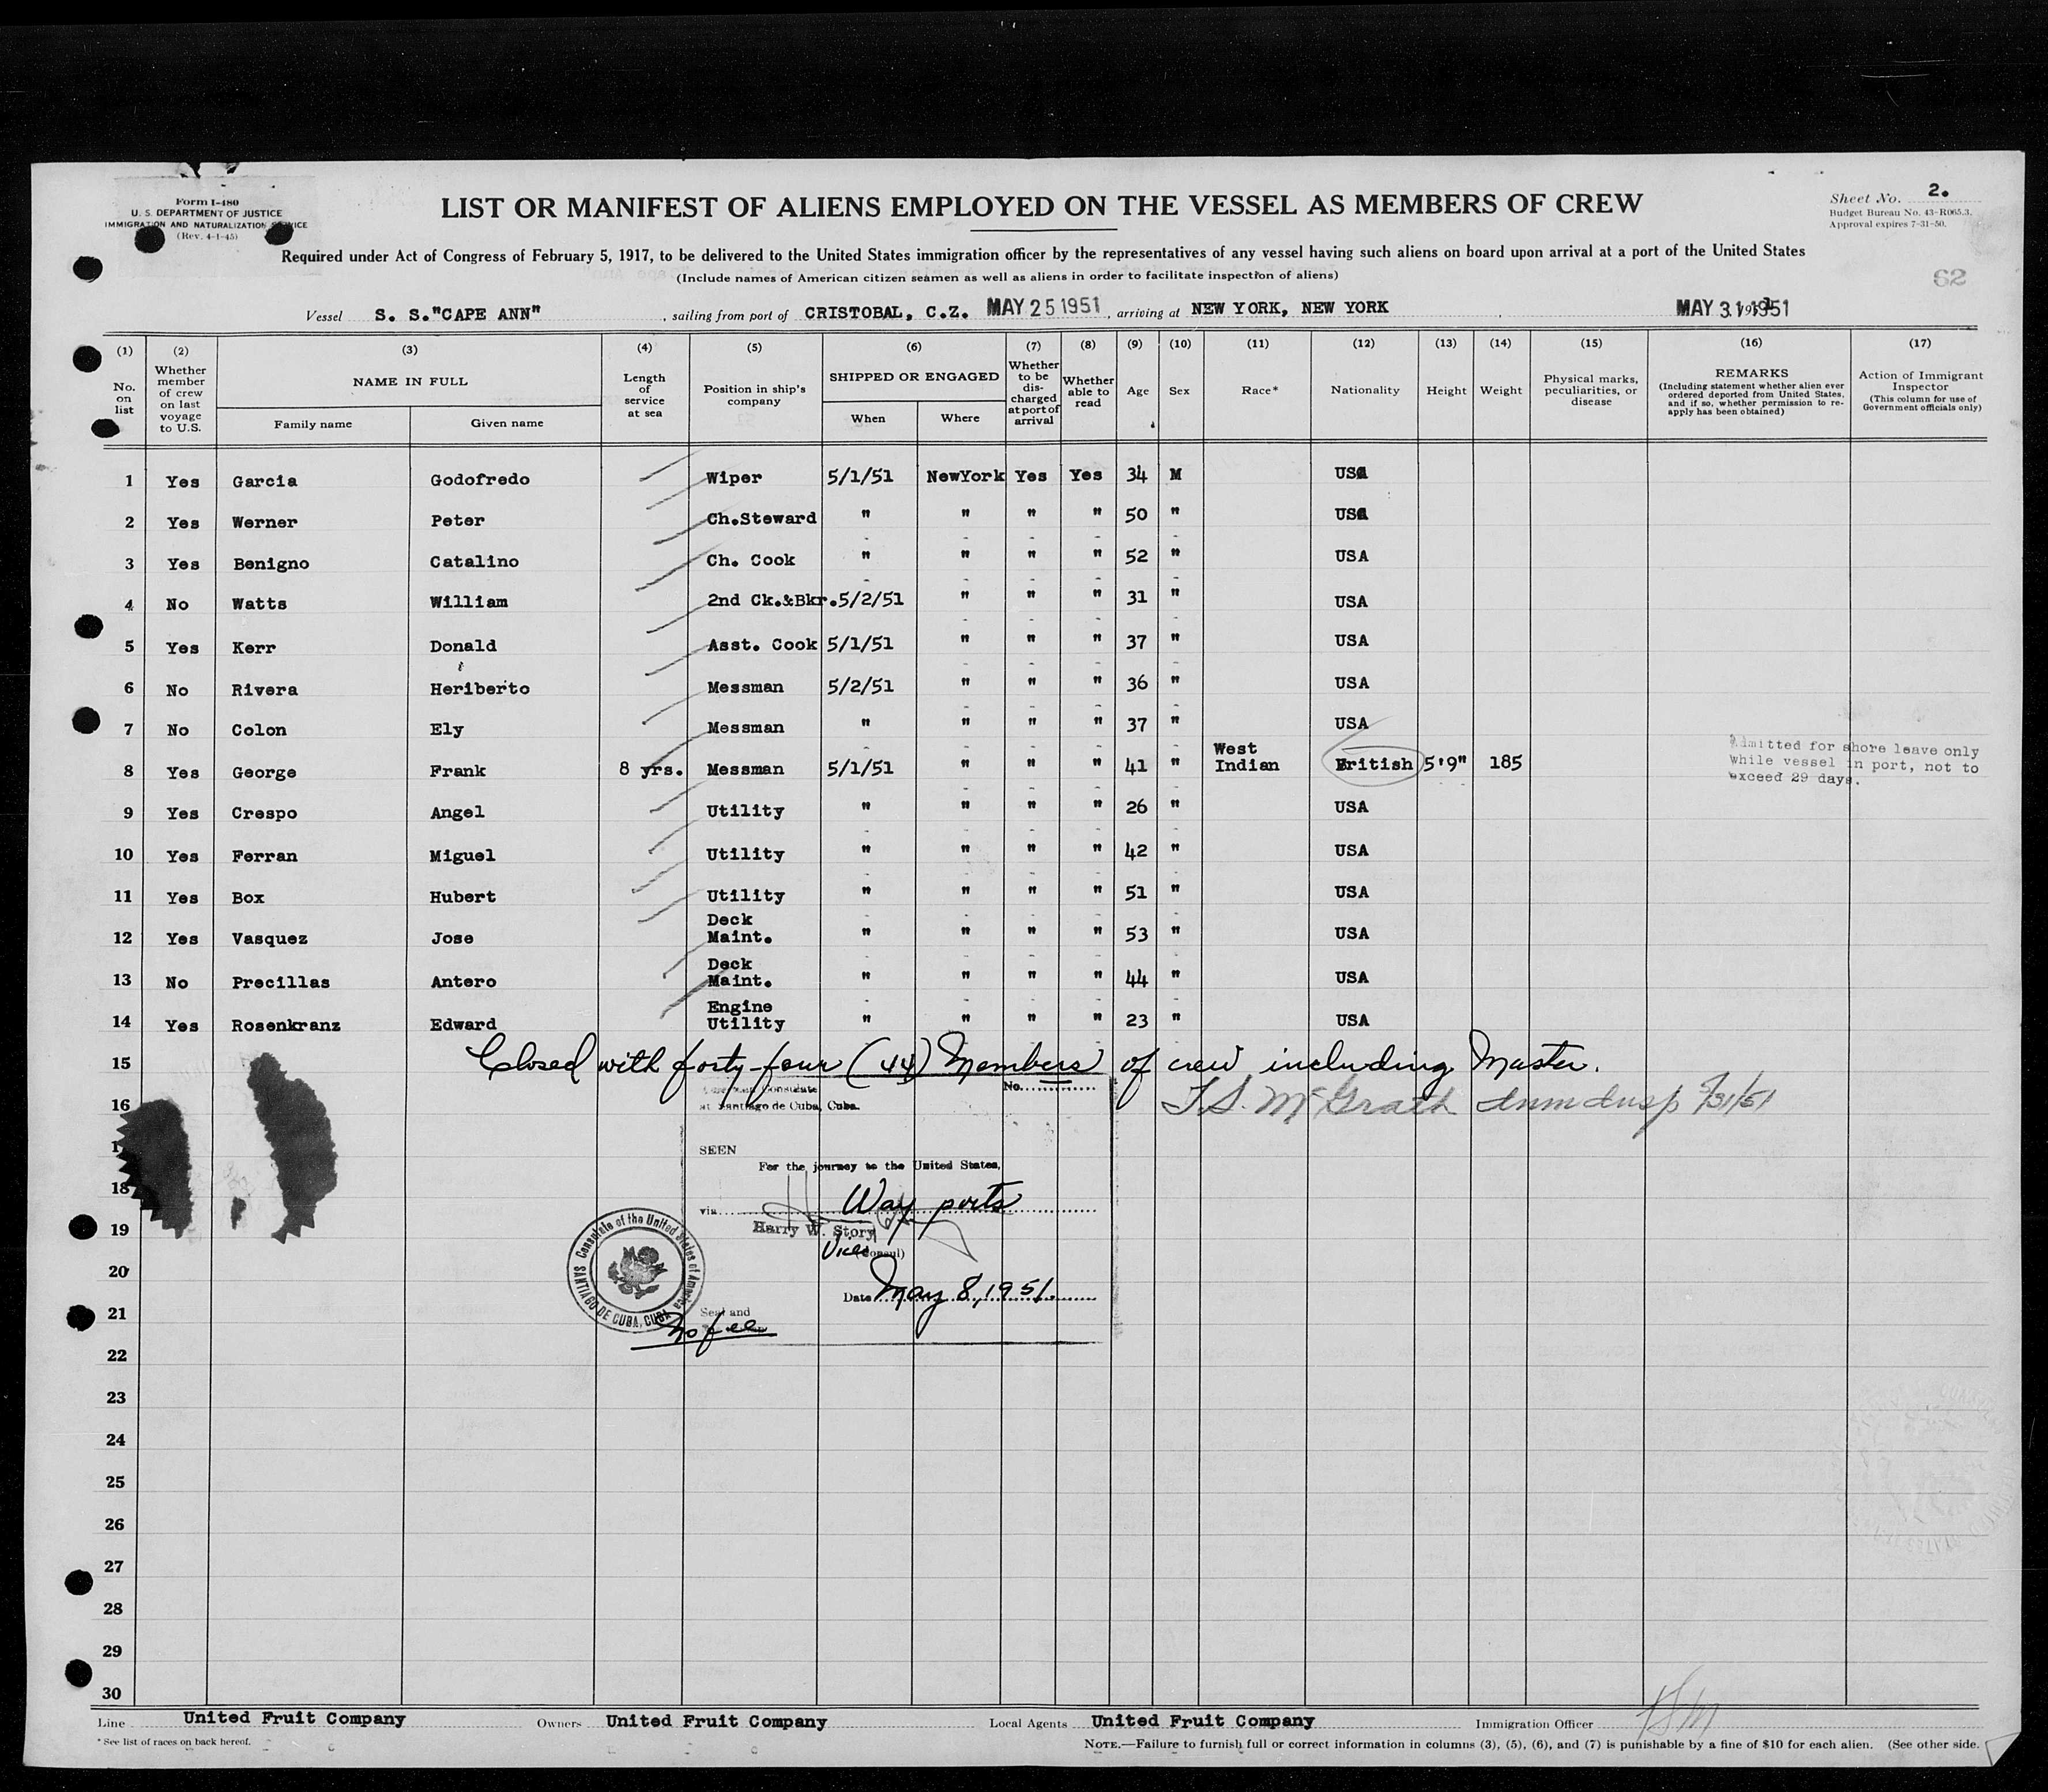 Form I-480
U. S. DEPARTMENT OF JUSTICE
IMMIGRATION AND NATURALIZATION SERVICE
(Rev. 4-1-45)
LIST OR MANIFEST OF ALIENS EMPLOYED ON THE VESSEL AS MEMBERS OF CREW
Sheet No. 2.
Budget Bureau No. 43-R065.3.
Approval expires 7-31-50.
Required under Act of Congress of February 5, 1917, to be delivered to the United States immigration officer by the representatives of any vessel having such aliens on board upon arrival at a port of the United States
(Include names of American citizen seamen as well as aliens in order to facilitate inspection of aliens)
62
Vessel S. S."CAPE ANN" , sailing from port of CRISTOBAL, C.Z. MAY 25 1951 , arriving at NEW YORK, NEW YORK , MAY 31 1951
(1) (2) (3) (4) (5) (6) (7) (8) (9) (10) (11) (12) (13) (14) (15) (16) (17)
No. on list
Whether member of crew on last voyage to U.S.
NAME IN FULL
Family name
Given name
Length of service at sea
Position in ship's company
SHIPPED OR ENGAGED
When
Where
Whether to be discharged at port of arrival
Whether able to read
Age
Sex
Race*
Nationality
Height
Weight
Physical marks, peculiarities, or disease
REMARKS
(Including statement whether alien ever ordered deported from United States, and if so, whether permission to reapply has been obtained)
Action of Immigrant Inspector
(This column for use of Government officials only)
1 Yes Garcia Godofredo Wiper 5/1/51 NewYork Yes Yes 34 M USA
2 Yes Werner Peter Ch.Steward " " " " 50 " USA
3 Yes Benigno Catalino Ch. Cook " " " " 52 " USA
4 No Watts William 2nd Ck.&Bkr. 5/2/51 " " " 31 " USA
5 Yes Kerr Donald Asst. Cook 5/1/51 " " " 37 " USA
6 No Rivera Heriberto Messman 5/2/51 " " " 36 " USA
7 No Colon Ely Messman " " " " 37 " USA
8 Yes George Frank 8 yrs. Messman 5/1/51 " " " 41 " West Indian British 5'9" 185 Admitted for shore leave only while vessel in port, not to exceed 29 days.
9 Yes Crespo Angel Utility " " " " 26 " USA
10 Yes Ferran Miguel Utility " " " " 42 " USA
11 Yes Box Hubert Utility " " " " 51 " USA
12 Yes Vasquez Jose Deck Maint. " " " " 53 " USA
13 No Precillas Antero Deck Maint. " " " " 44 " USA
14 Yes Rosenkranz Edward Engine Utility " " " " 23 " USA
15 Closed with forty-four (44) Members of crew including Master.
American Consulate No.
16 at Santiago de Cuba, Cuba. T.S. McGrath Imm Insp 5/31/51
17 SEEN
For the journey to the United States,
18 via Way ports
19 Harry W. Story
Vice (Consul)
Consulate of the United States of America
SANTIAGO DE CUBA, CUBA
20 Date May 8, 1951.
21 Seal and
No fee
22
23
24
25
26
27
28
29
30
Line United Fruit Company Owners United Fruit Company Local Agents United Fruit Company Immigration Officer TSM
* See list of races on back hereof.
NOTE.—Failure to furnish full or correct information in columns (3), (5), (6), and (7) is punishable by a fine of $10 for each alien. (See other side.